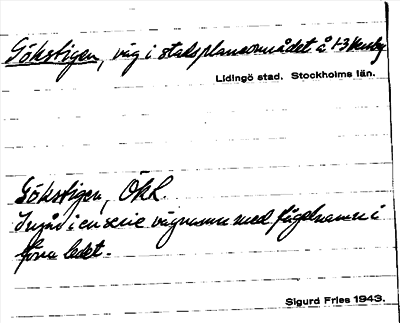 Gökstigen, väg i stadsplaneområdet å
Lidingö stad. Stockholms län.
Gökstigen, ÖKL.
Ingår i en serie vägnamn med fågelnamn i
förra ledet.
Sigurd Fries 1943.